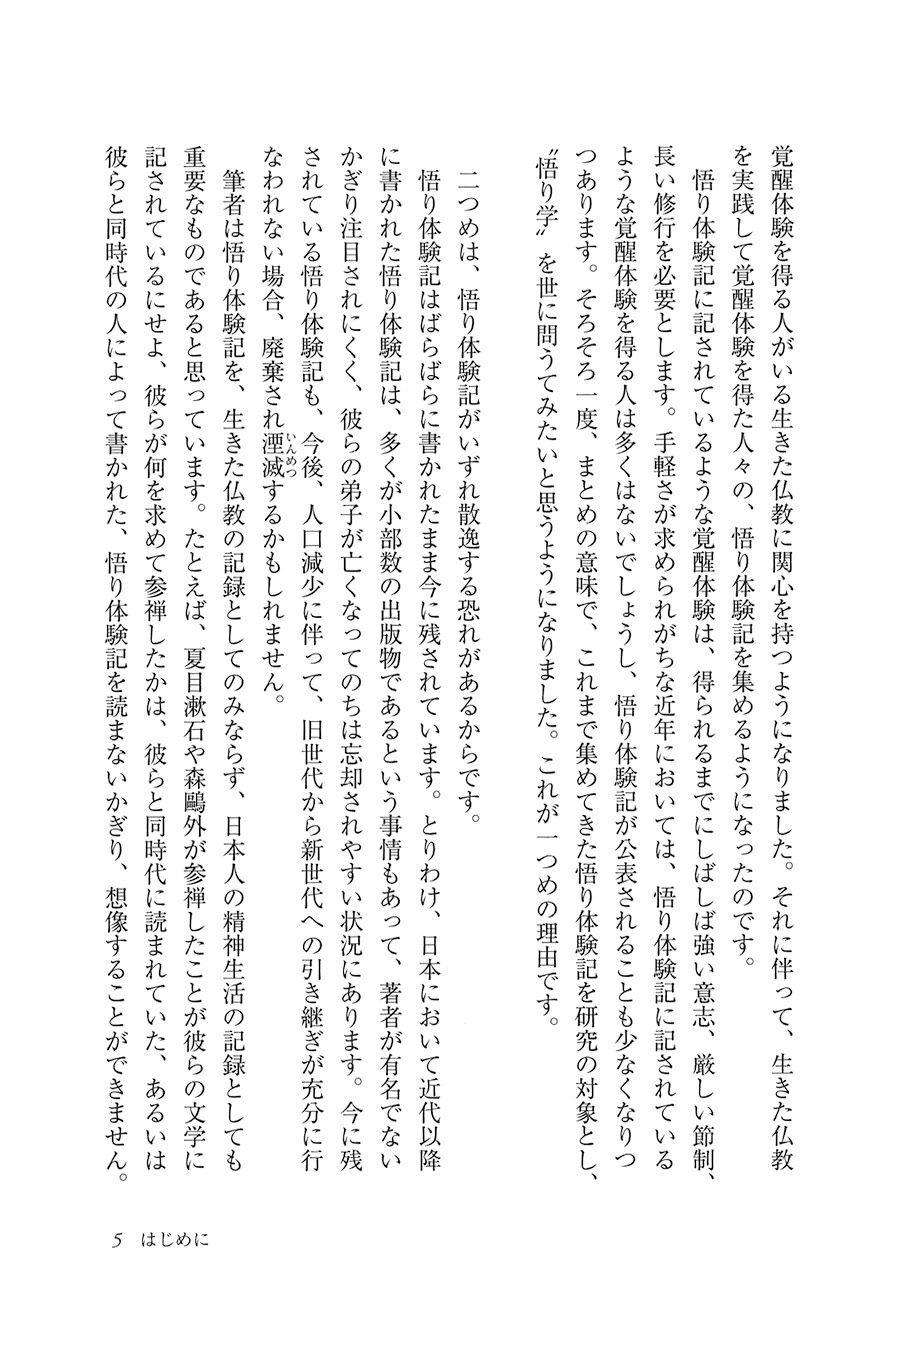 覚醒体験を得る人がいる生きた仏教に関心を持つようになりました。それに伴って、生きた仏教
を実践して覚醒体験を得た人々の、悟り体験記を集めるようになったのです。
悟り体験記に記されているような覚醒体験は、得られるまでにしばしば強い意志、厳しい節制、
長い修行を必要とします。手軽さが求められがちな近年においては、悟り体験記に記されている
ような覚醒体験を得る人は多くはないでしょうし、悟り体験記が公表されることも少なくなりつ
つあります。そろそろ一度、まとめの意味で、これまで集めてきた悟り体験記を研究の対象とし、
〝悟り学〟を世に問うてみたいと思うようになりました。これが一つめの理由です。
二つめは、悟り体験記がいずれ散逸する恐れがあるからです。
悟り体験記はばらばらに書かれたまま今に残されています。とりわけ、日本において近代以降
に書かれた悟り体験記は、多くが小部数の出版物であるという事情もあって、著者が有名でない
かぎり注目されにくく、彼らの弟子が亡くなってのちは忘却されやすい状況にあります。今に残
されている悟り体験記も、今後、人口減少に伴って、旧世代から新世代への引き継ぎが充分に行
なわれない場合、廃棄され湮滅いんめつするかもしれません。
筆者は悟り体験記を、生きた仏教の記録としてのみならず、日本人の精神生活の記録としても
重要なものであると思っています。たとえば、夏目漱石や森鷗外が参禅したことが彼らの文学に
記されているにせよ、彼らが何を求めて参禅したかは、彼らと同時代に読まれていた、あるいは
彼らと同時代の人によって書かれた、悟り体験記を読まないかぎり、想像することができません。
5 はじめに